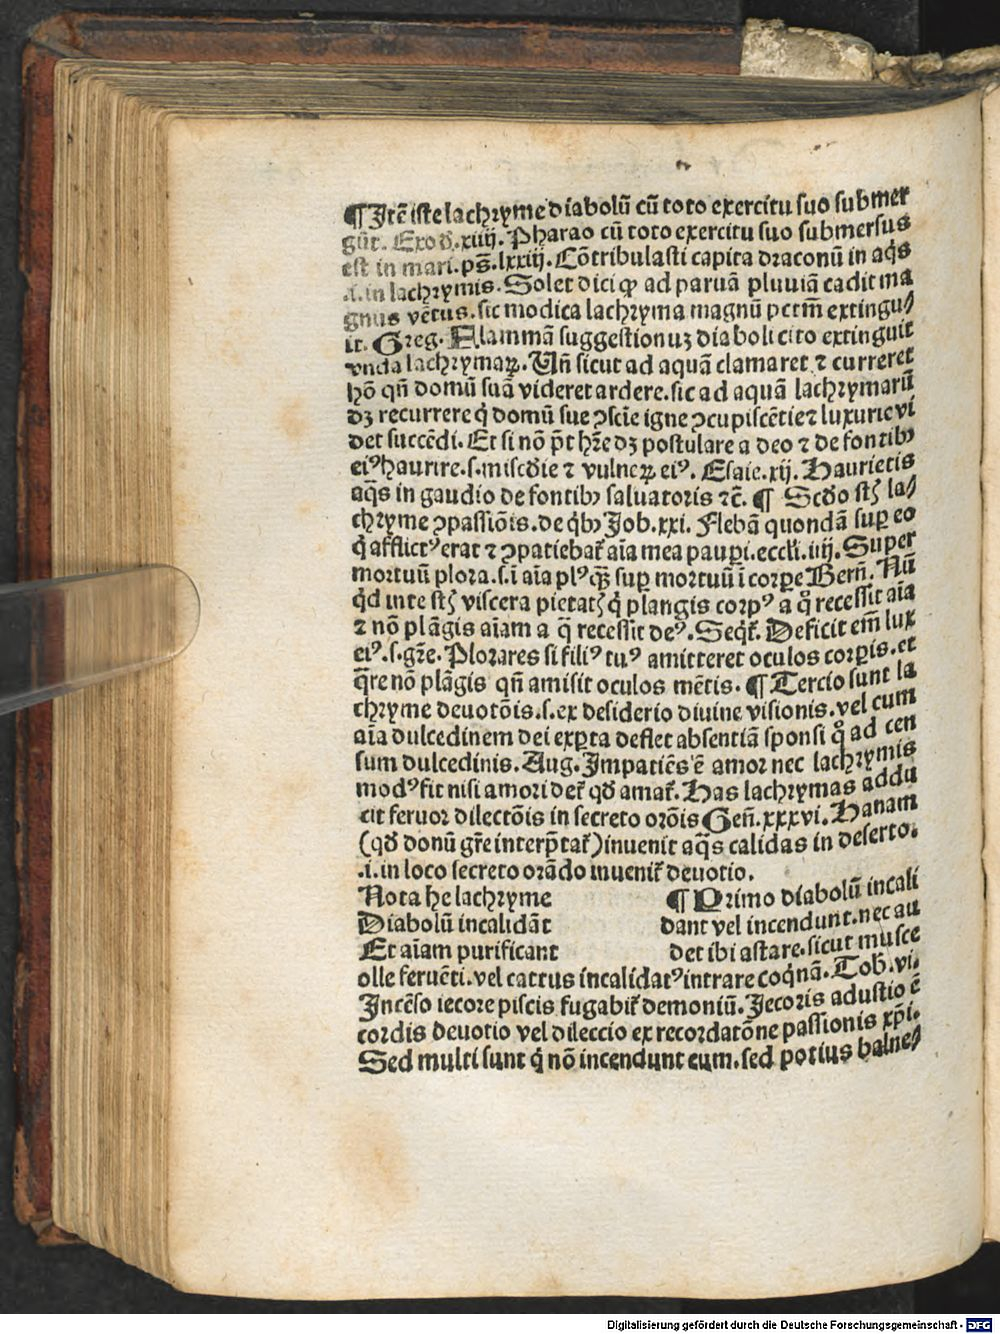 ¶ Itē iste lachryme diabolū cū toto exercitu suo submer
gūt. Exod̄. xiiij. Pharao cū toto exercitu suo submersus
est in mari. ps̄. lxxiij. Cōtribulasti capita draconū in aq̄s
.i. in lachrymis. Solet dici ꝙ ad paruā pluuiā cadit ma
gnus vētus. sic modica lachryma magnū pctm̄ extingu⸗
it. Greg. Flammā suggestionuꝫ diaboli cito extinguit
vnda lachrymaꝝ. Uñ sicut ad aquā clamaret ⁊ curreret
hō qñ domū suā videret ardere. sic ad aquā lachrymarū
dꝫ recurrere q̇ domū sue ꝯscīe igne ꝯcupiscētie ⁊ luxurie vi
det succēdi. Et si nō pt̄ hr̄e dꝫ postulare a deo ⁊ de fontibꝰ
eiꝰ haurire. s. mis̄cdie ⁊ vulneꝝ eiꝰ. Esaie. xij. Haurietis
aq̄s in gaudio de fontibꝰ saluatoris ⁊c̄. ¶ Scd̄o st̄ la⸗
chryme ꝯpassiōis. de q̇bꝰ Job. xxi. Flebā quondā suꝑ eo
q̇ afflictꝰ erat ⁊ ꝯpatiebat̄ aīa mea pauꝑi. eccłi. iiij. Super
mortuū plora. s. ī aīa plꝰ q̄ꝫ suꝑ mortuū ī corꝑe Berñ. Nū
q̄d in te st̄ viscera pietat̄ q̇ plangis corpꝰ a qͦ recessit aīa
⁊ nō plāgis aīam a q̄ recessit deꝰ. Seqt̄. Deficit em̄ lux
eiꝰ. s. gr̄e. Plorares si filiꝰ tuꝰ amitteret oculos corꝑis. et
q̄re nō plāgis qñ amisit oculos mētis. ¶ Tercio sunt la
chryme deuotōis. s. ex desiderio diuine visionis. vel cum
aīa dulcedinem dei exꝑta deflet absentiā sponsi qͦ ad cen
sum dulcedinis. Aug. Impatiēs ē amor nec lachrymis
modꝰ fit nisi amori det̄ qd̄ amat̄. Has lachrymas addu
cit feruor dilectōis in secreto orōis Geñ. xxxvi. Hanam
(qd̄ donū gr̄e interp̄tat̄) inuenit aq̄s calidas in deserto.
.i. in loco secreto orādo inuenit̄ deuotio.
Nota he lachryme ¶ Primo diabolū incali
Diabolū incalidāt dant vel incendunt. nec au
Et aīam purificant det ibi astare. sicut musce
olle feruēti. vel cattus incalidatꝰ intrare coq̄nā. Tob̄. vi.
Incēso iecore piscis fugabit̄ demoniū. Jecoris adustio ē
cordis deuotio vel dileccio ex recordatōne passionis xp̄i.
Sed multi sunt q̇ nō incendunt eum. sed potius balne⸗
Digitalisierung gefördert durch die Deutsche Forschungsgemeinschaft - DFG